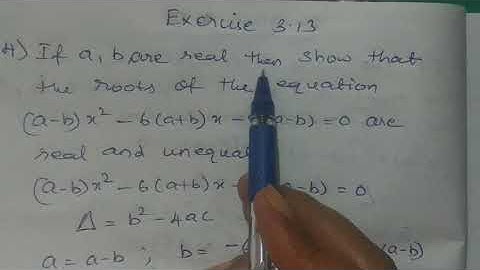 Exercise 3.13
4) If a, b are real then show that
the roots of the equation
(a-b)x² - 6(a+b)x - (a-b) = 0 are
real and unequal
(a-b)x² - 6(a+b)x - (a-b) = 0
Δ = b² - 4ac
a = a-b ; b = -6 (a-b)